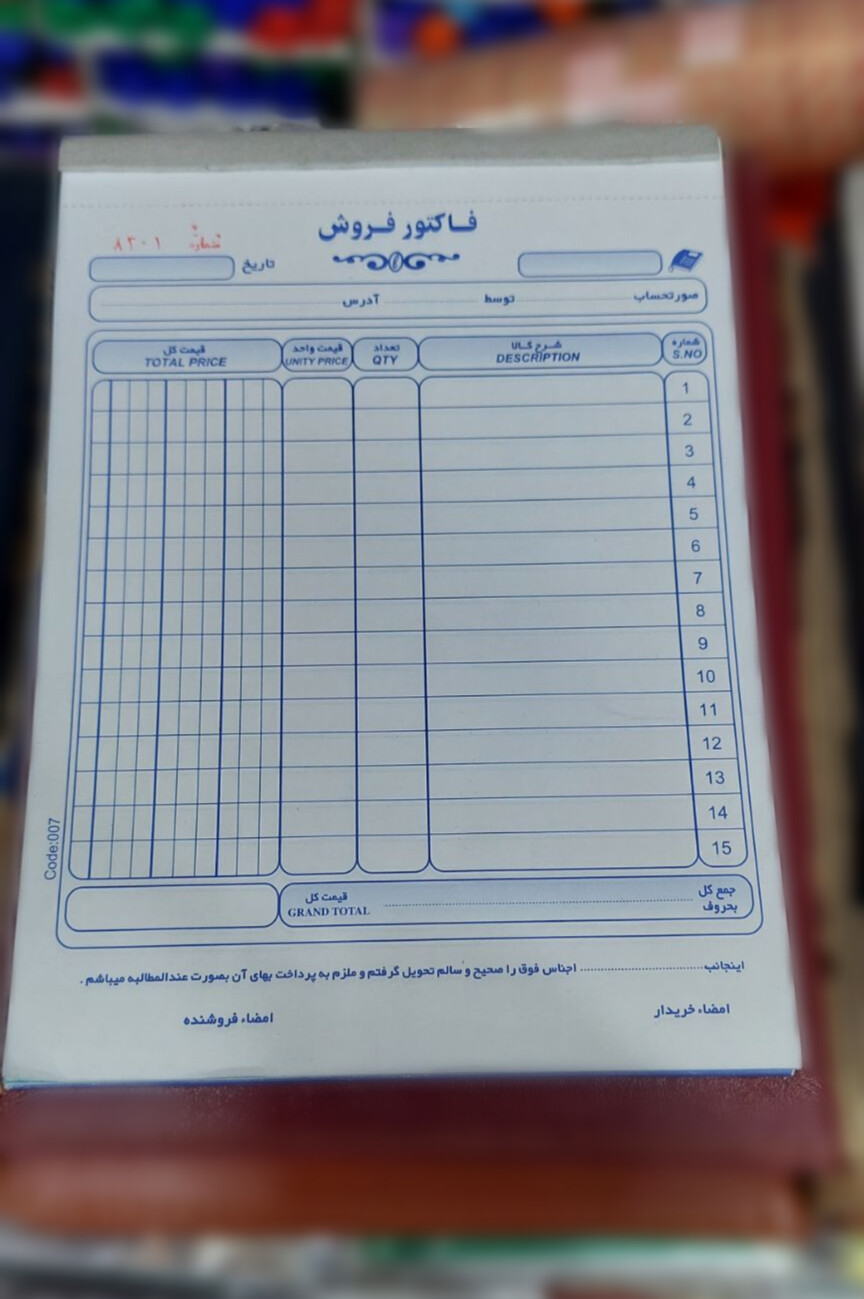 فاکتور فروش
شماره ۸۳۰۱
تاریخ
صورتحساب توسط آدرس
شماره شرح کالا تعداد قیمت واحد قیمت کل
S.NO DESCRIPTION QTY UNITY PRICE TOTAL PRICE
1
2
3
4
5
6
7
8
9
10
11
12
13
14
15
Code:007
جمع کل قیمت کل
بحروف GRAND TOTAL
اینجانب........................ اجناس فوق را صحیح و سالم تحویل گرفتم و ملزم به پرداخت بهای آن بصورت عندالمطالبه میباشم .
امضاء خریدار امضاء فروشنده